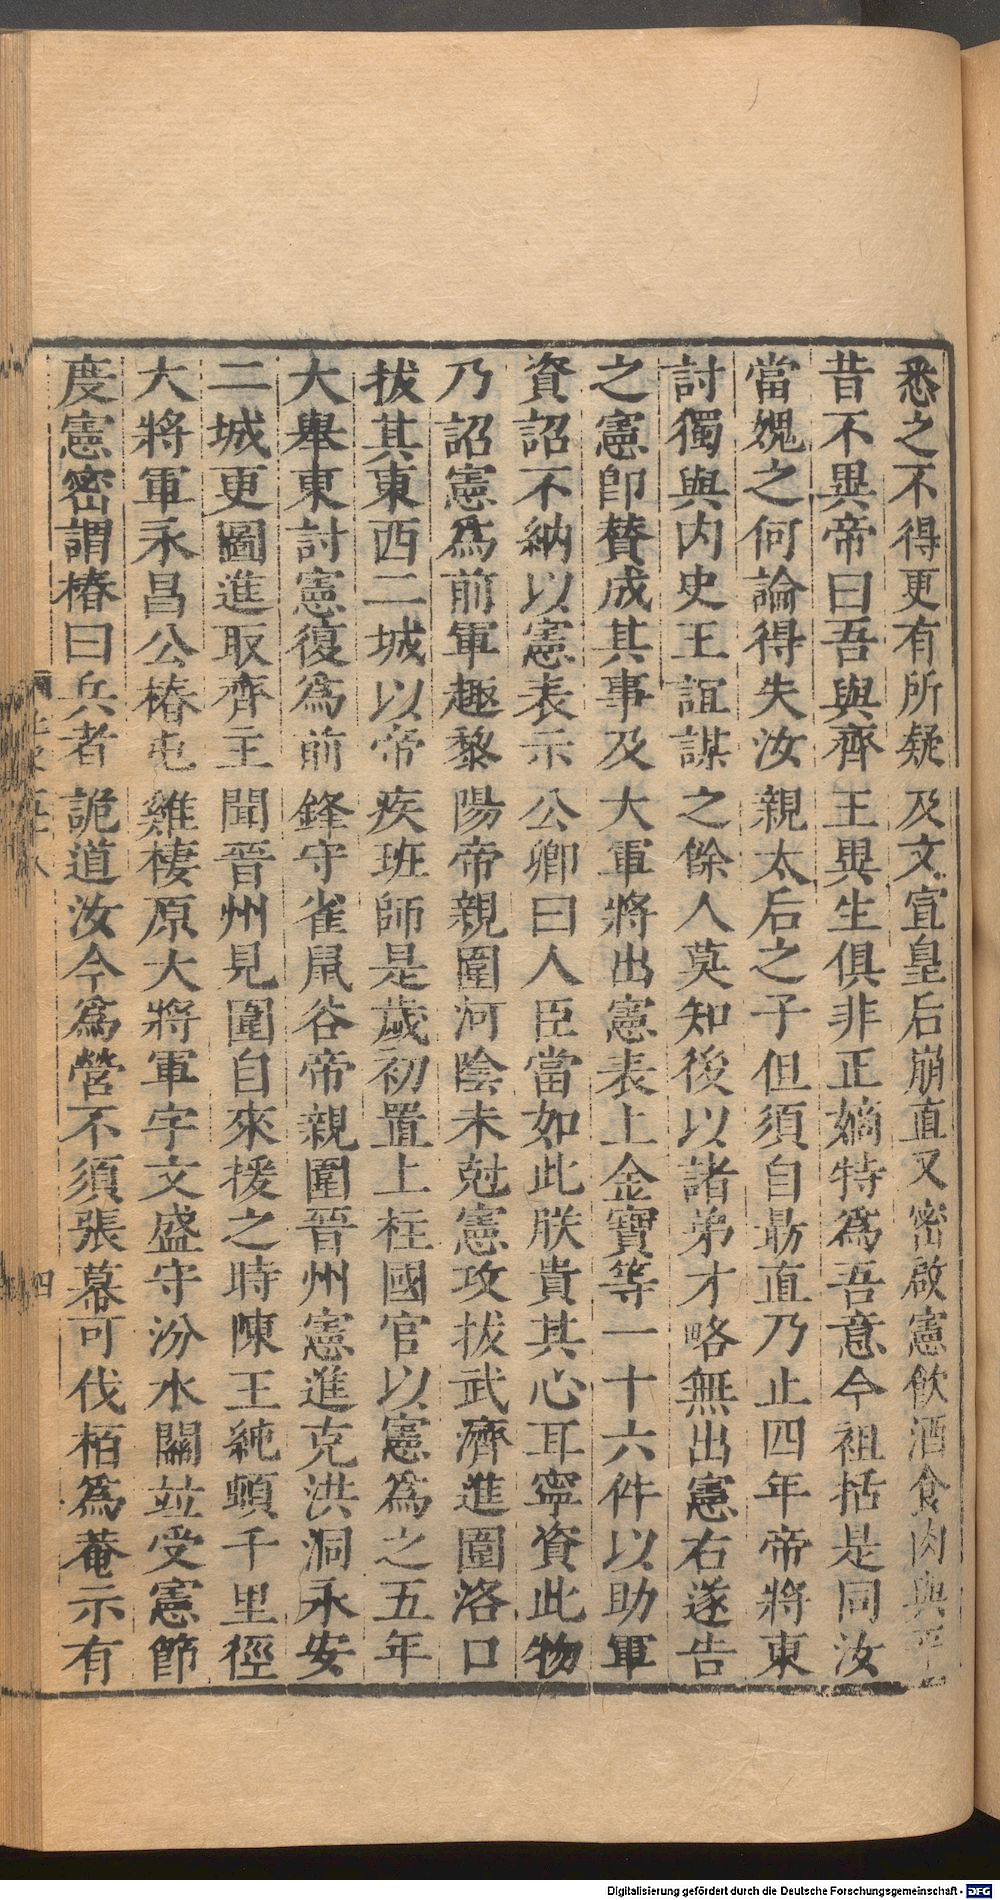 悉之不得更有所疑及文宣皇后崩直又密啟憲飲酒食肉與平
昔不異帝曰吾與齊王異生俱非正嫡特為吾意今袒括是同汝
當媿之何論得失汝親太后之子但須自勗直乃止四年帝將東
討獨與內史王誼謀之餘人莫知後以諸弟才略無出憲右遂告
之憲卽贊成其事及大軍將出憲表上金寶等一十六件以助軍
資詔不納以憲表示公卿曰人臣當如此朕貴其心耳寧資此物
乃詔憲為前軍趣黎陽帝親圍河陰未尅憲攻拔武濟進圍洛口
拔其東西二城以帝疾班師是歲初置上柱國官以憲為之五年
大舉東討憲復為前鋒守雀鼠谷帝親圍晉州憲進克洪洞永安
二城更圖進取齊主聞晉州見圍自來援之時陳王純頓千里徑
大將軍永昌公椿屯雞棲原大將軍宇文盛守汾水關並受憲節
度憲密謂椿曰兵者詭道汝今為營不須張幕可伐栢為菴示有
四
Digitalisierung gefördert durch die Deutsche Forschungsgemeinschaft - DFG